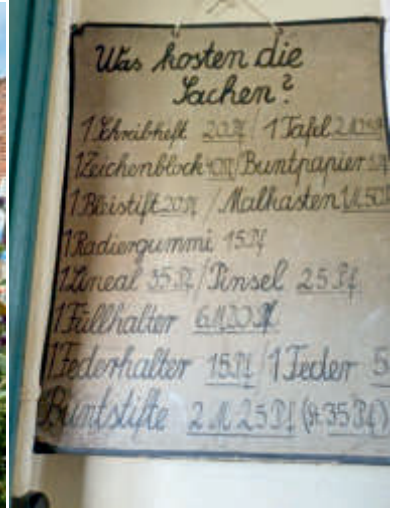 Was kosten die
Sachen?
1 Schreibheft 20 Pf / 1 Tafel 2 M
1 Zeichenblock 40 Pf / Buntpapier
1 Bleistift 20 Pf / Malkasten 1 M 50
1 Radiergummi 15 Pf
1 Lineal 35 Pf / Pinsel 25 Pf
1 Füllhalter 6 M 20 Pf
1 Federhalter 15 Pf / 1 Feder 5
Buntstifte 2 M 25 Pf (St 35 Pf)